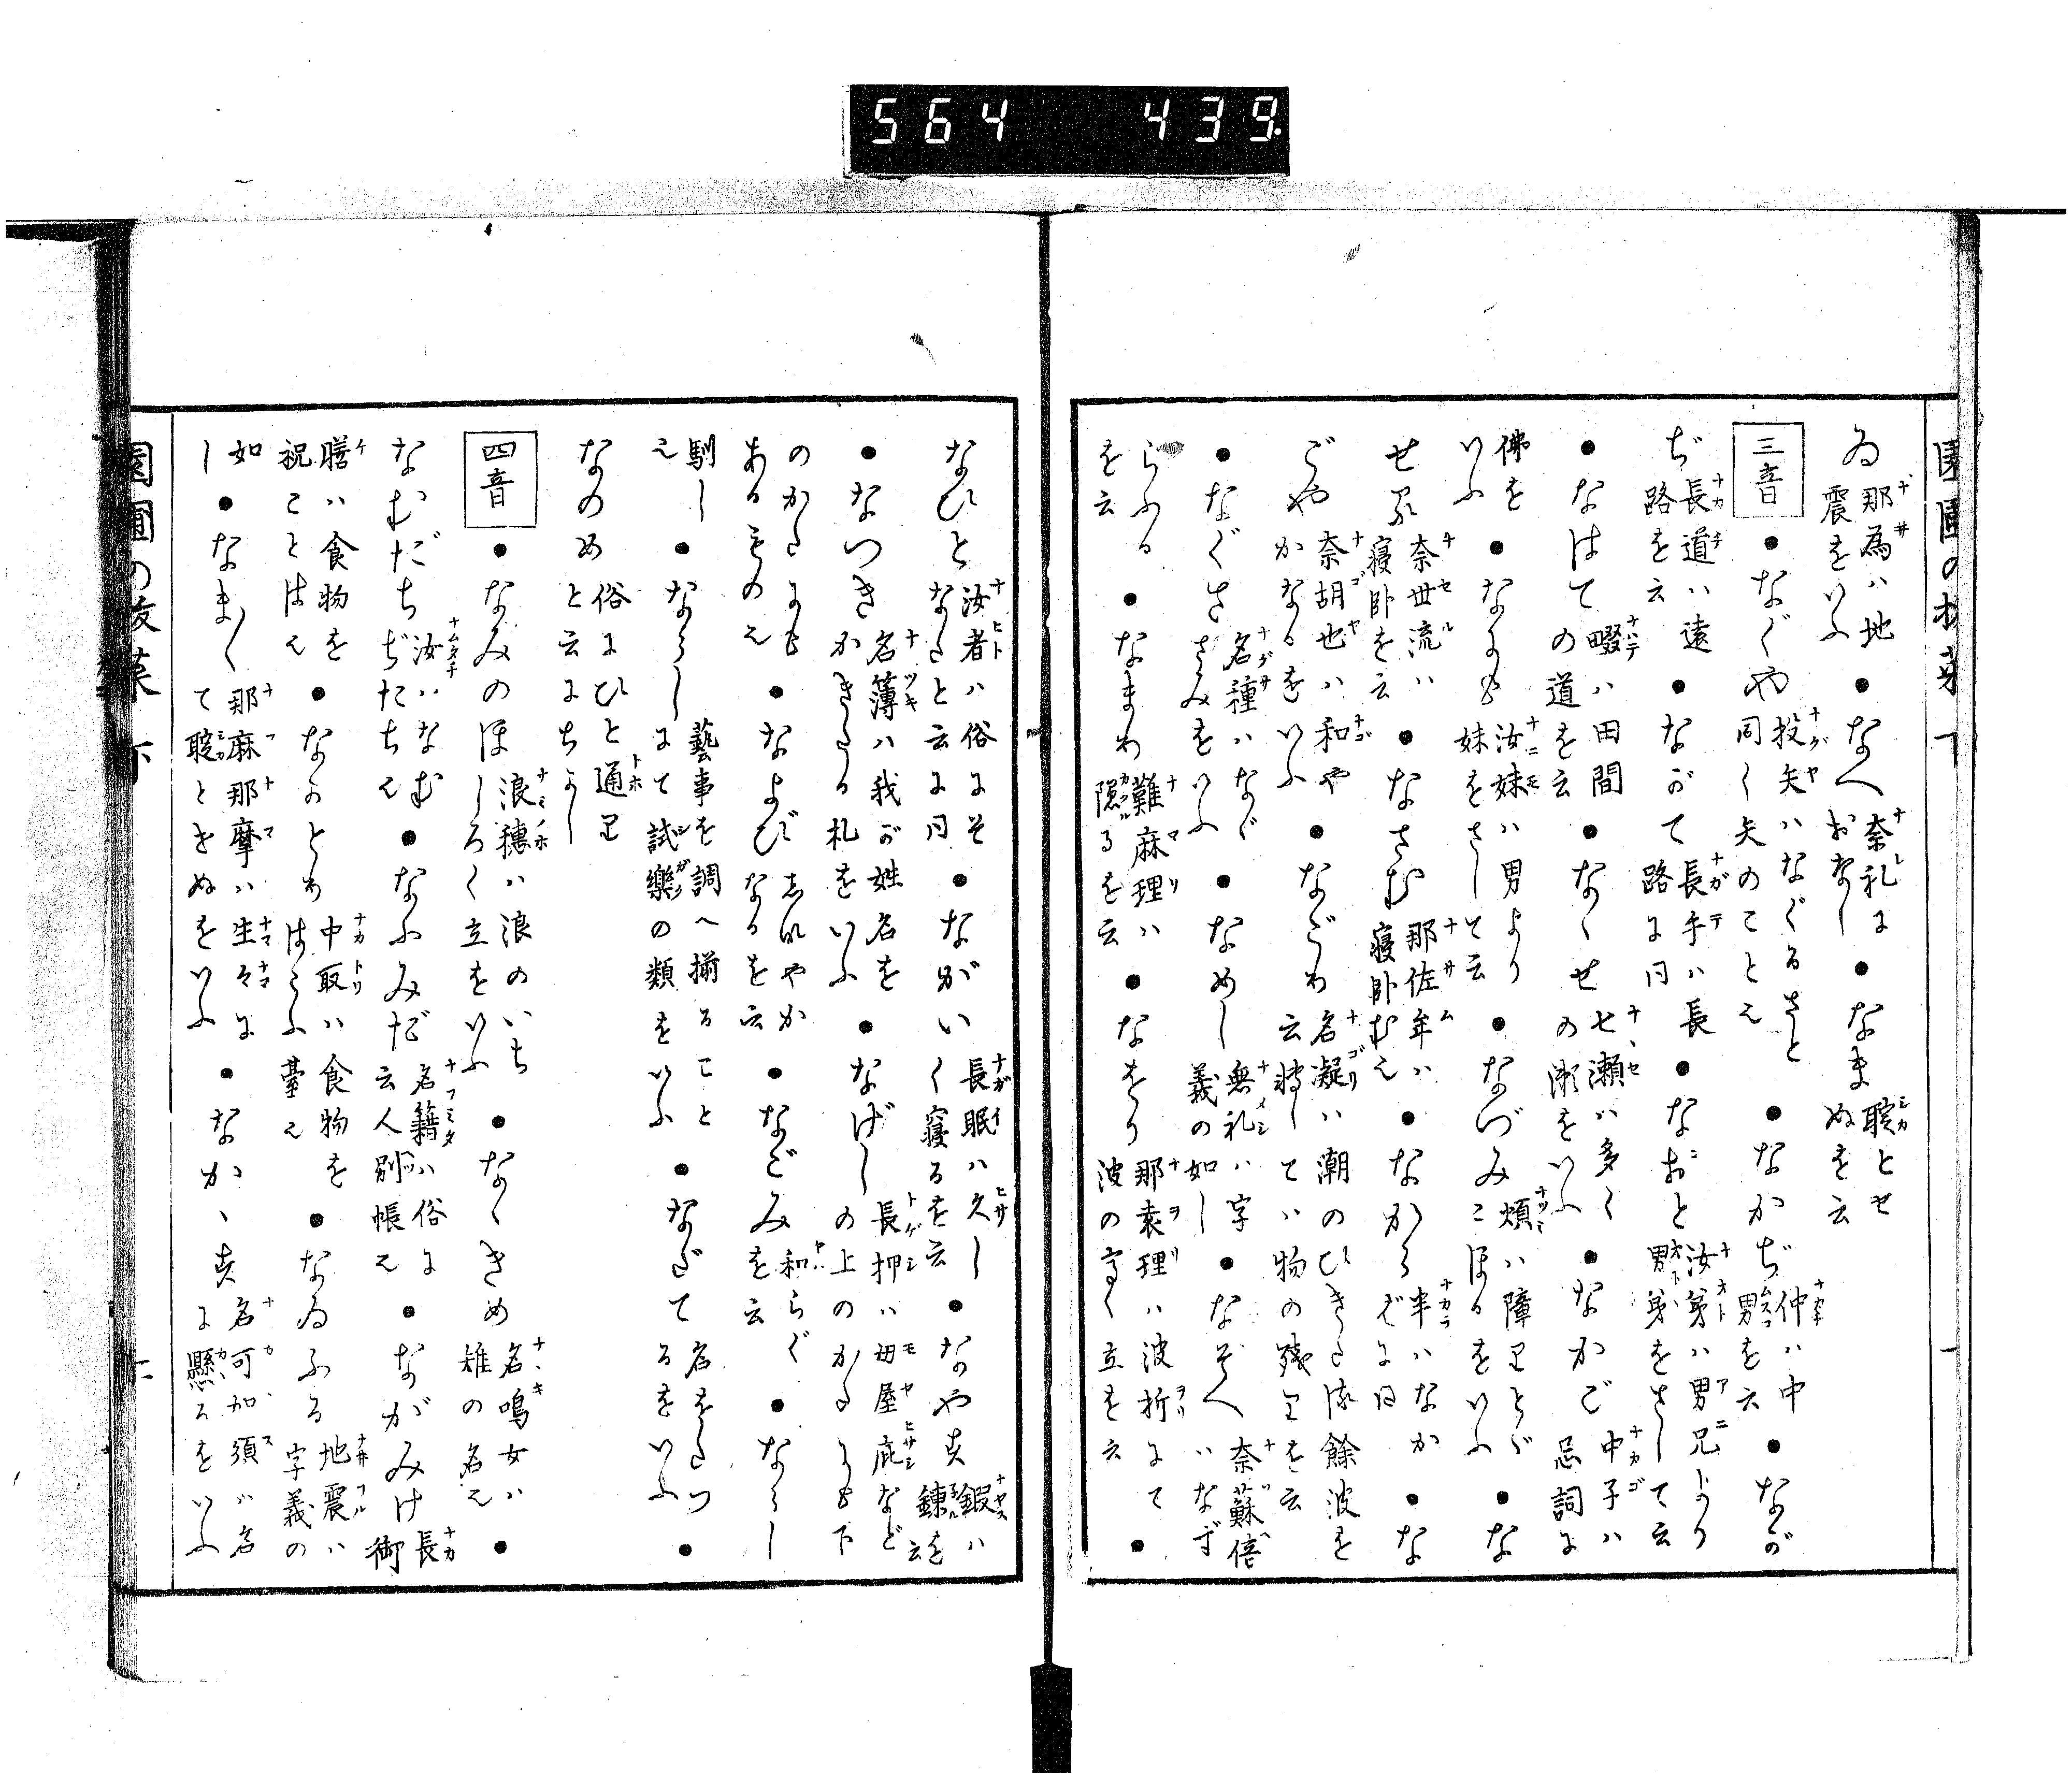 564 439
ゐ 那為ハ地震をいふ ●なへ 奈礼におなし ●なま 聢とせぬを云
三音 ●なぐや 投矢ハなぐるさと同く矢のことえ ●なかぢ 仲ハ中男を云 ●なが
ぢ 長道ハ遠路を云 ●ながて 長手ハ長路に同 ●なおと 汝弟ハ男兄より男弟をさして云
●なはて 畷ハ田間の道を云 ●なゝせ 七瀬ハ多くの瀬をいふ ●なかご 中子ハ忌詞に
佛をいふ ●なにも 汝妹ハ男より妹をさして云 ●なづみ 煩ハ障りとゞこほるをいふ ●な
せる 奈世流ハ寝卧を云 ●なさむ 那佐牟ハ寝卧むえ ●なから 半ハなかばに同 ●な
ごや 奈胡也ハ和やかなるをいふ ●なごり 名凝ハ潮のひきたる餘波を云 ハ物の残りを云
●なぐさ 名種ハなぐさみをいふ ●なめし 無礼ハ字義の如し ●なぞへ 奈蘇倍ハなず
らふる ●なまり 難麻理ハ隠るを云 ●なをり 那袁理ハ波折にて波の高く立を云 ●
なひと 汝者ハ俗にそなたと云に同 ●ながい 長眠ハ久しく寝るを云 ●なやす 鍛ハ錬を云
●なつき 名簿ハ我が姓名をかきたる札をいふ ●なげし 長押ハ母屋庇などの上のかたにも下
のかたにもあるものえ ●なよび しなやかなるを云 ●なごみ 和らぐを云 ●ならし
馴しえ ●ならし 藝事を調へ揃ることにて試樂の類をいふ ●なだて 名をたつるをいふ ●
なのめ 俗にひと通りと云にちかし
四音 ●なみのほ 浪穂ハ浪のいちしろく立をいふ ●なゝきめ 名鳴女ハ雉の名え ●
なむだち 汝ハなむぢたちえ ●なふみだ 名籍ハ俗に云人別帳え ●ながみけ 長御
膳ハ食物を祝ことはえ ●なかとり 中取ハ食物をはこふ臺え ●なゐふる 地震ハ字義の
如し ●なま〱 那麻那摩ハ生々にて聢ときぬをいふ ●なかゝす 名可加須ハ名に懸るをいふ
園圃の
下